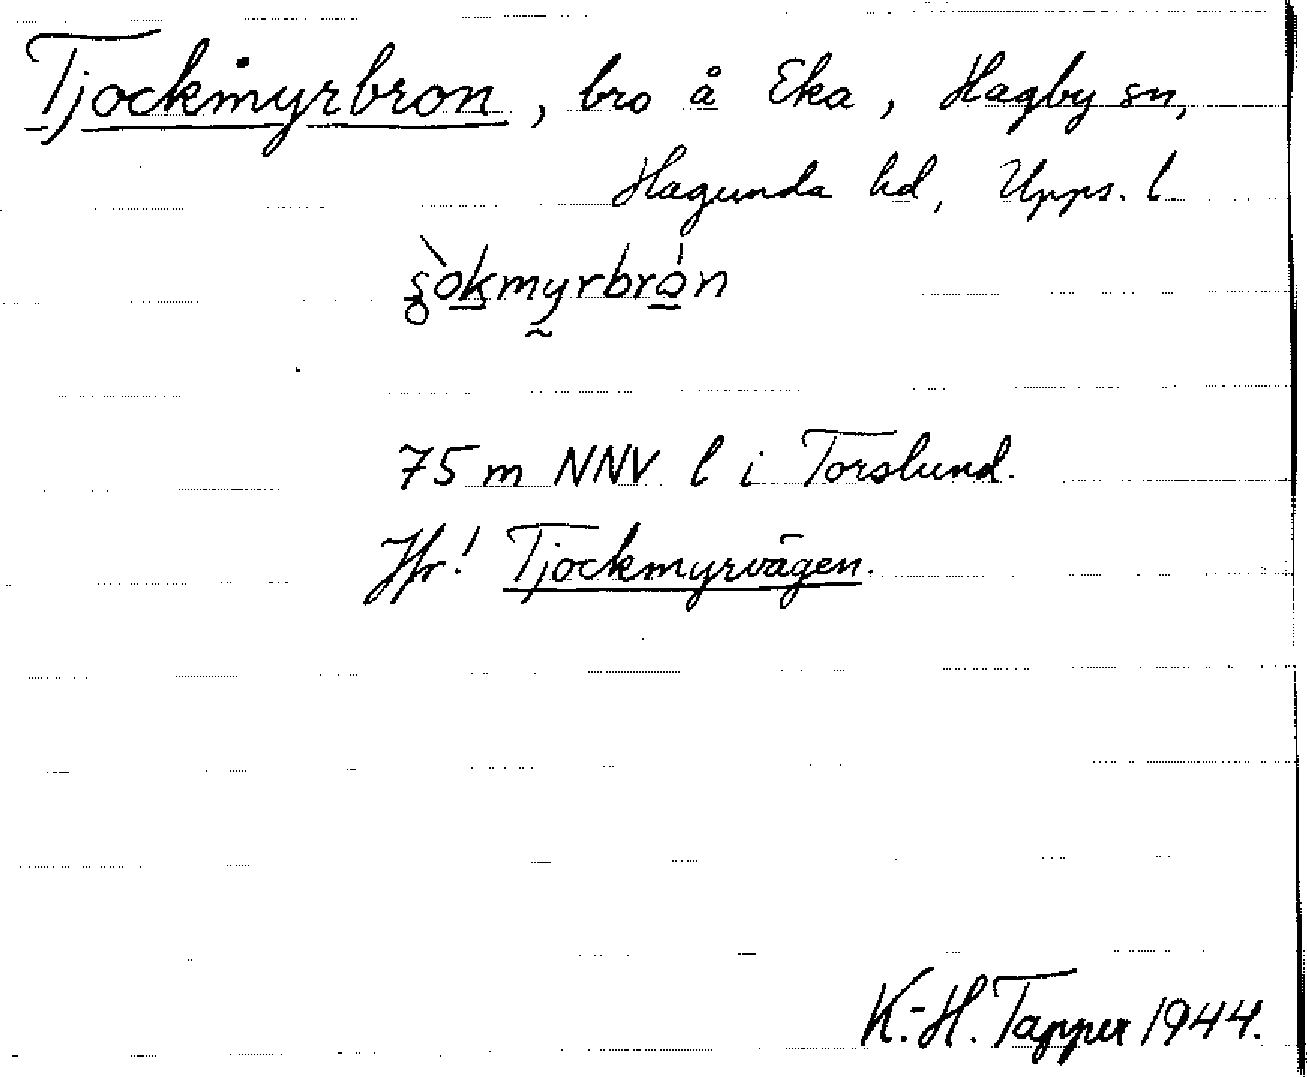 Tjockmyrbron, bro å Eka, Hagby sn,
Hagunda hd, Upps. l
s̀okmyrbrón
75 m NNV l i Torslund.
Jfr! Tjockmyrvägen.
K.-H. Tapper 1944.